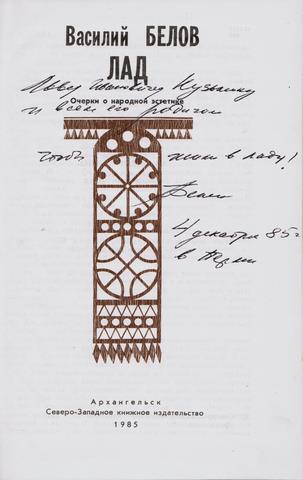 Василий БЕЛОВ
ЛАД
Очерки о народной эстетике
Льву Ивановичу Кузьмину
и всем его родичам
чтобы жили в ладу!
Белов
4 декабря 85 г
в Перми
Архангельск
Северо-Западное книжное издательство
1985